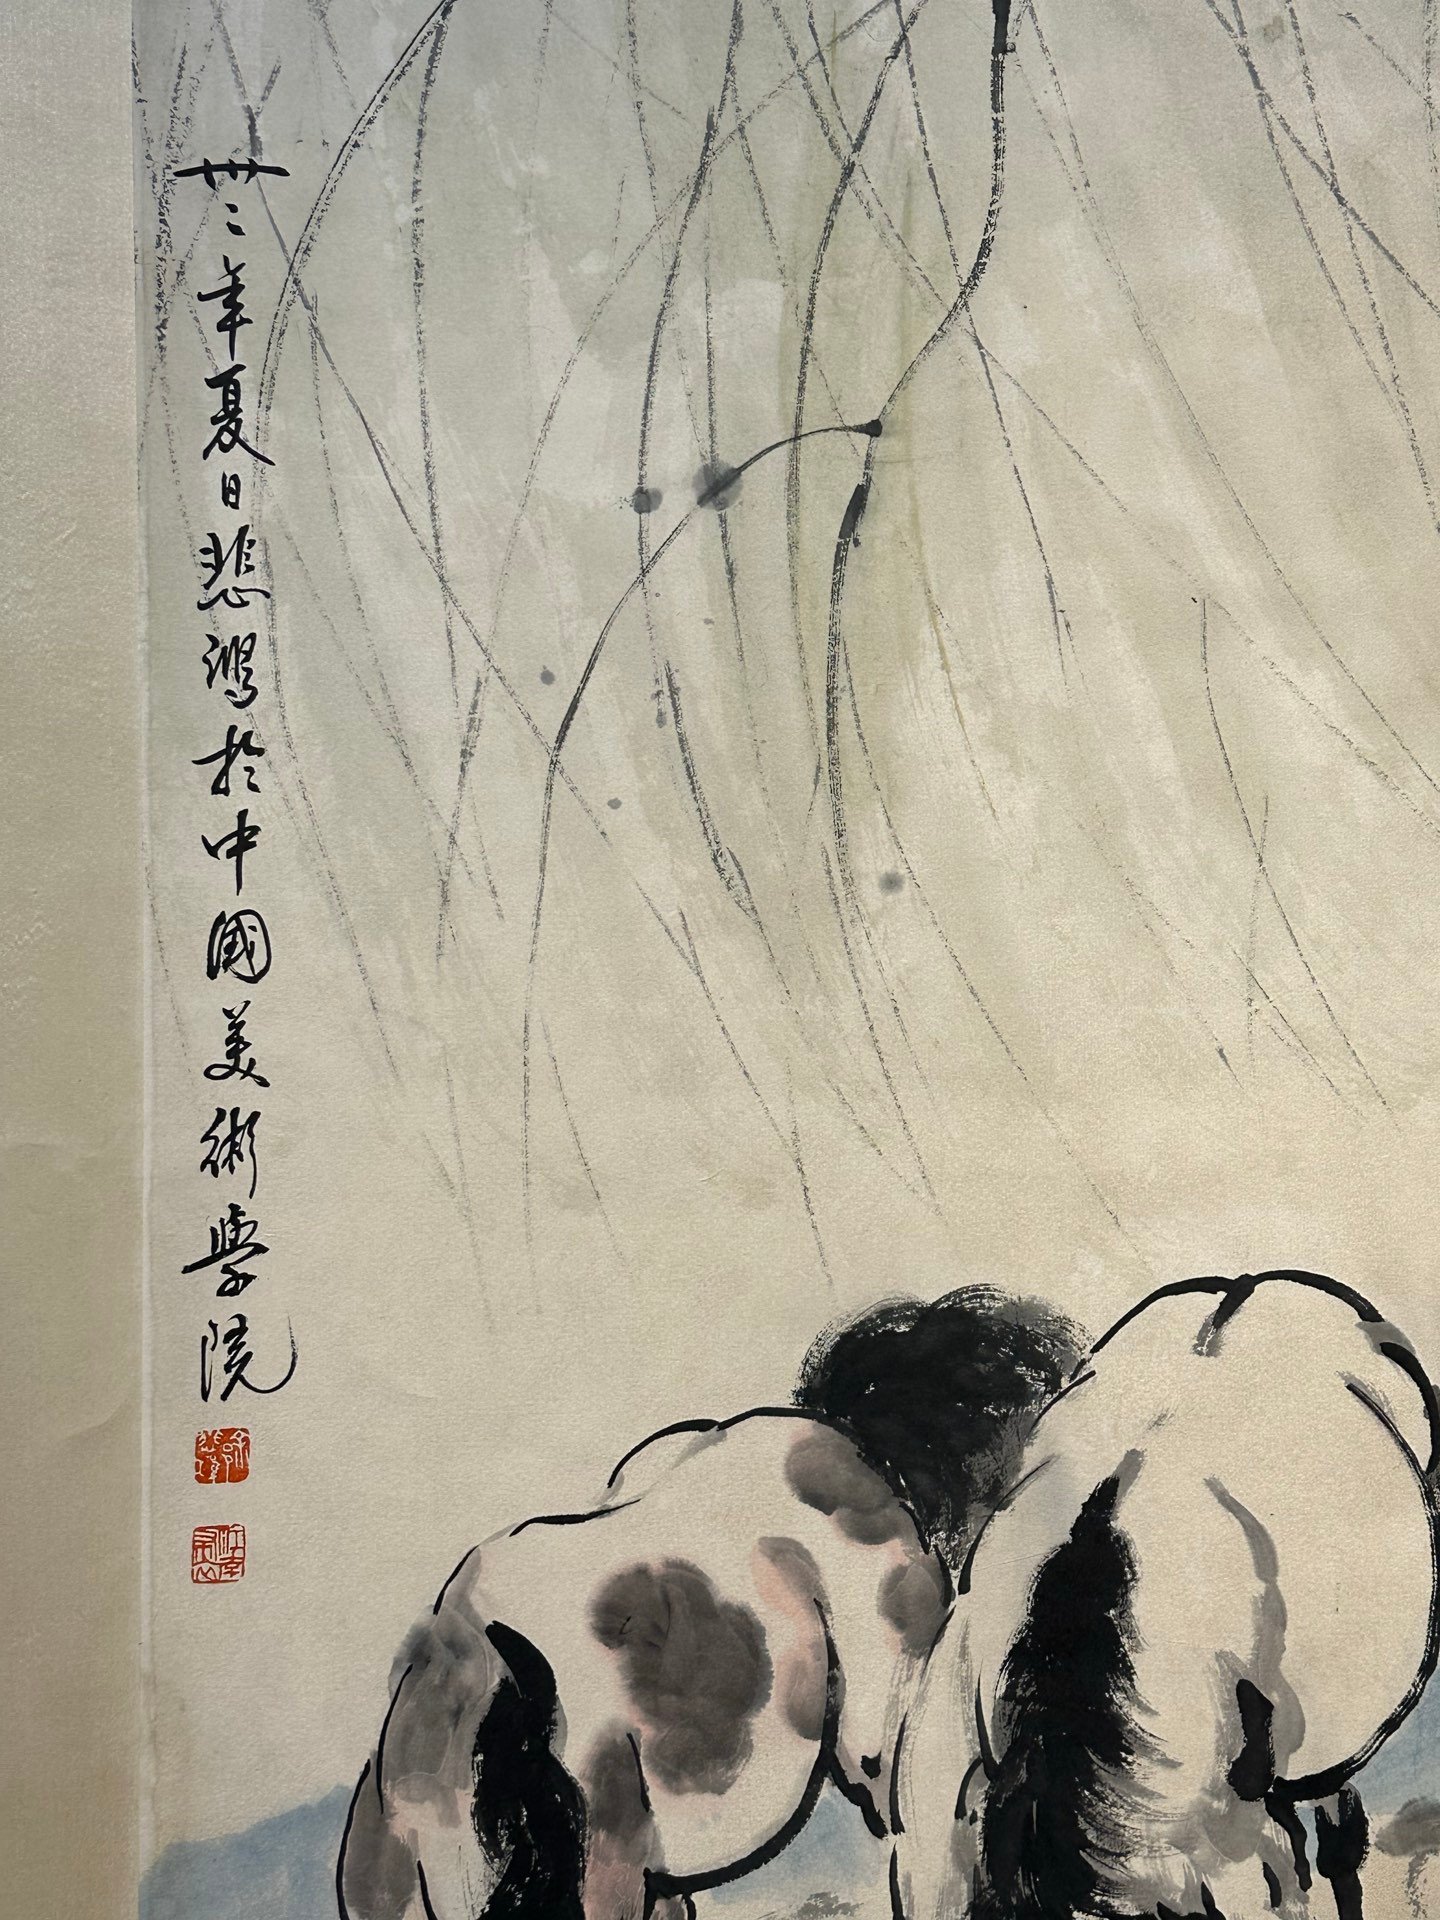 卅二年夏日悲鴻於中國美術學院